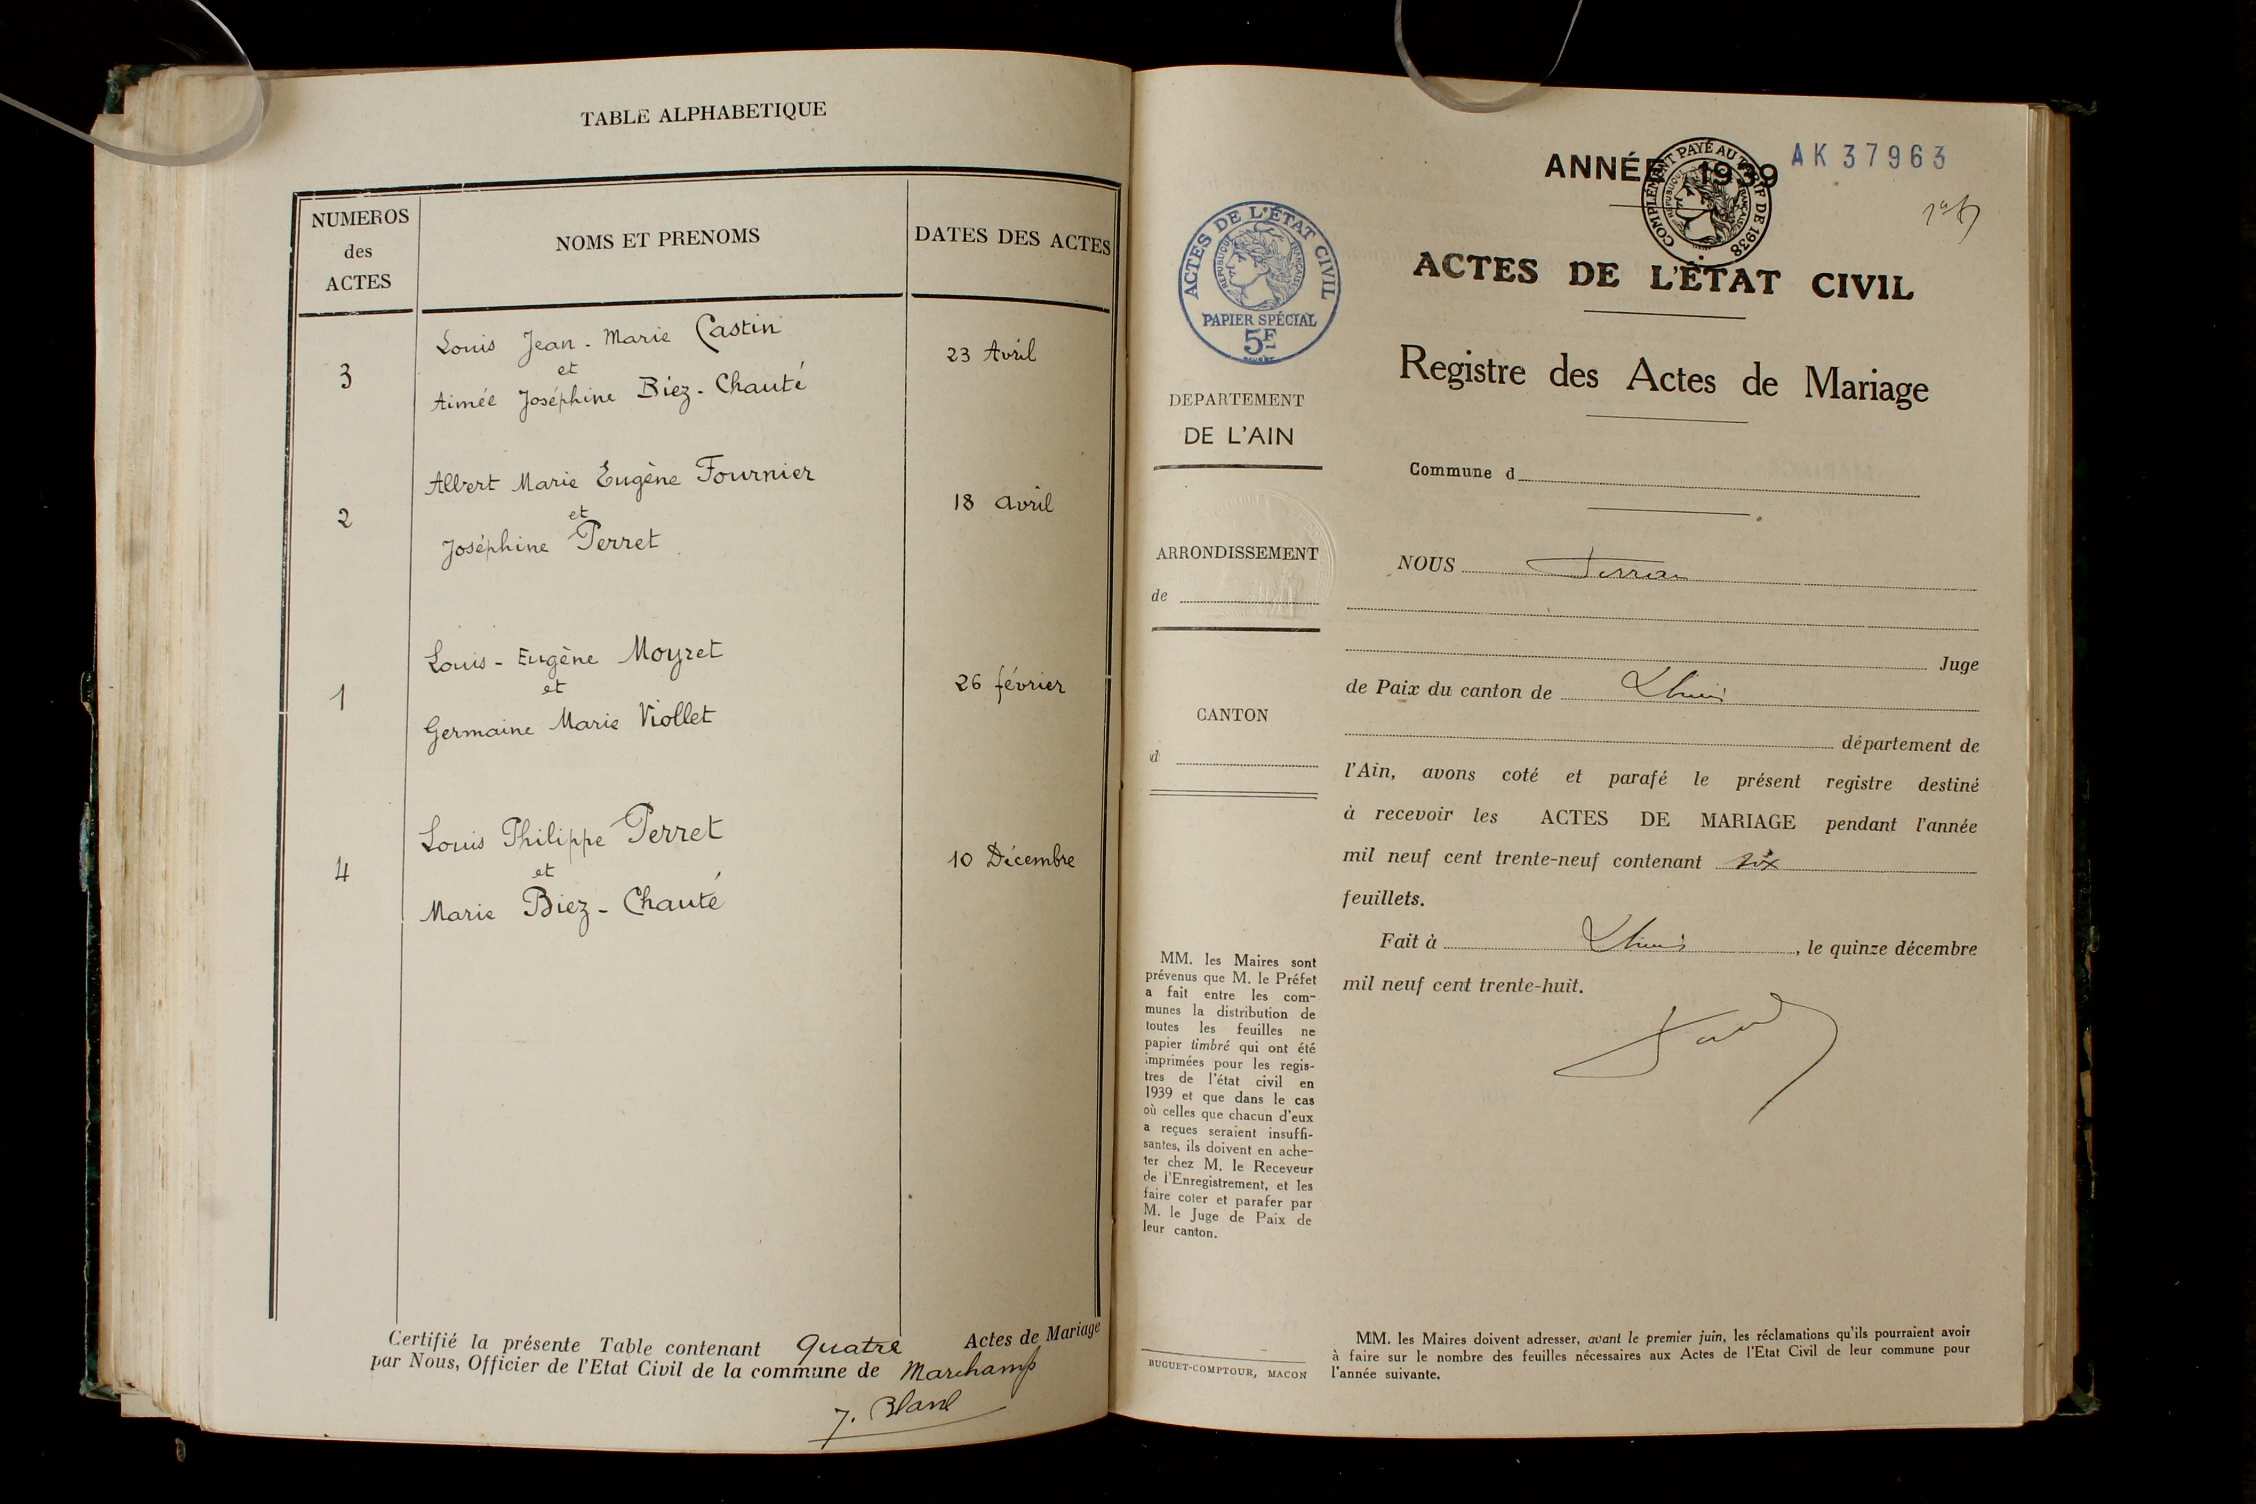 TABLE ALPHABETIQUE
NUMEROS
des
ACTES
NOMS ET PRENOMS
DATES DES ACTES
3
Louis Jean-Marie Castin
et
Aimée Joséphine Biez-Chauté
23 Avril
2
Albert Marie Eugène Fournier
et
Joséphine Perret
18 avril
1
Louis-Eugène Moyret
et
Germaine Marie Viollet
26 février
4
Louis Philippe Perret
et
Marie Biez-Chauté
10 Décembre
Certifié la présente Table contenant Quatre Actes de Mariage
par Nous, Officier de l'Etat Civil de la commune de Marchamp
J. Blanc
ANNÉE 1939
AK 37963
COMPLÉMENT PAYÉ AU TARIF DE 1938
RÉPUBLIQUE FRANÇAISE
ACTES DE L'ÉTAT CIVIL
RÉPUBLIQUE FRANÇAISE
PAPIER SPÉCIAL
5F
DEPARTEMENT
DE L'AIN
ARRONDISSEMENT
de
CANTON
d
MM. les Maires sont
prévenus que M. le Préfet
a fait entre les com-
munes la distribution de
toutes les feuilles ne
papier timbré qui ont été
imprimées pour les regis-
tres de l'état civil en
1939 et que dans le cas
où celles que chacun d'eux
a reçues seraient insuffi-
santes, ils doivent en ache-
ter chez M. le Receveur
de l'Enregistrement, et les
faire coter et parafer par
M. le Juge de Paix de
leur canton.
BUGUET-COMPTOUR, MACON
ACTES DE L'ÉTAT CIVIL
Registre des Actes de Mariage
Commune d
NOUS
Juge
de Paix du canton de Lhuis
département de
l'Ain, avons coté et parafé le présent registre destiné
à recevoir les ACTES DE MARIAGE pendant l'année
mil neuf cent trente-neuf contenant six
feuillets.
Fait à Lhuis, le quinze décembre
mil neuf cent trente-huit.
MM. les Maires doivent adresser, avant le premier juin, les réclamations qu'ils pourraient avoir
à faire sur le nombre des feuilles nécessaires aux Actes de l'Etat Civil de leur commune pour
l'année suivante.